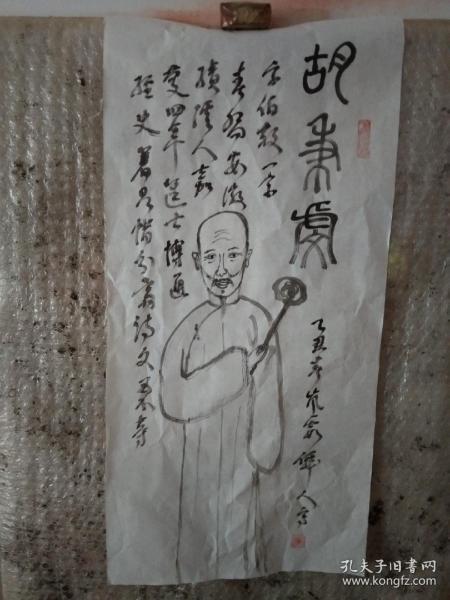 胡秉虔
字伯敬一字
春喬安徽
績溪人嘉
慶四年進士博通
經史著有惜分齋詩文集等
乙丑春
人寫
孔夫子旧书网
www.kongfz.com